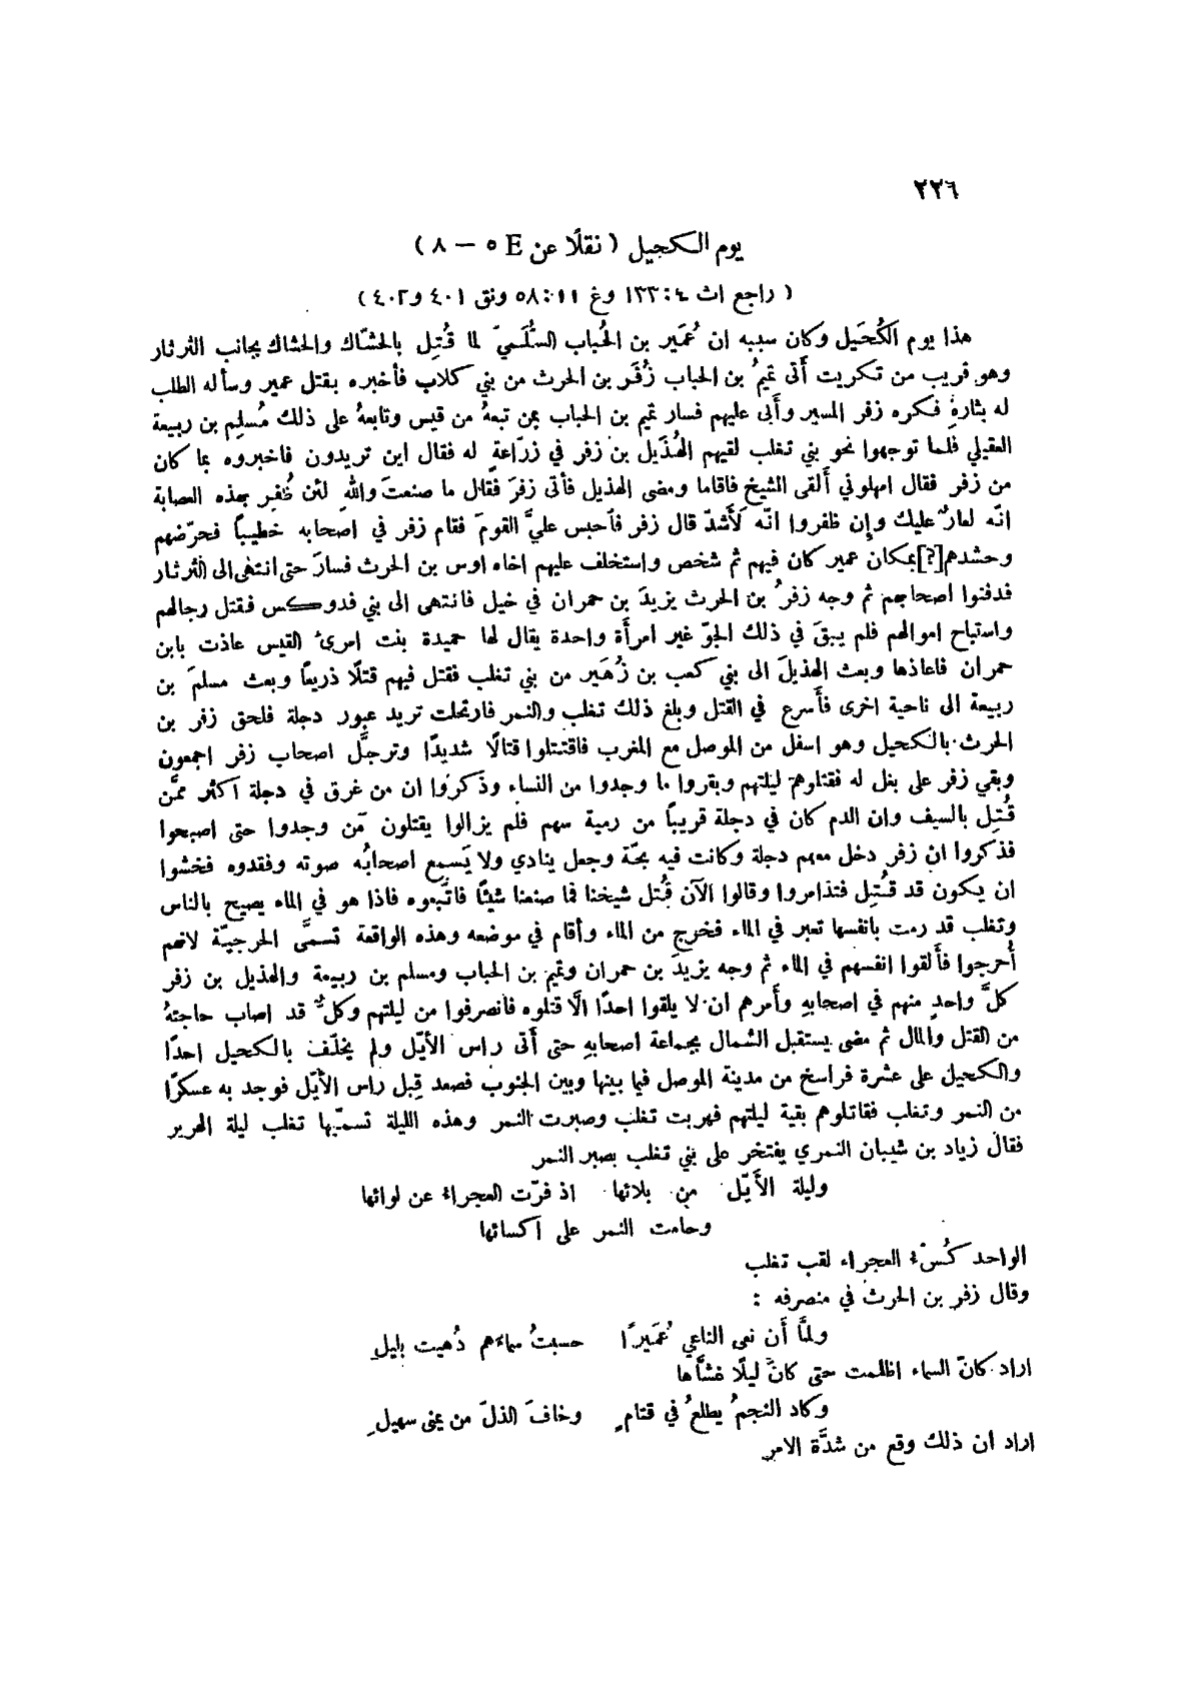 ٢٢٦
يوم الكحيل (نقلًا عن E ٥ – ٨)
(راجع اث ٤:١٣٣ وغ ١١:٥٨ ونق ٤٠١ و٤٠٢)
هذا يوم الكُحَيل وكان سببه ان عُمَير بن الحُباب السُّلَميّ لما قُتِل بالحشّاك والحشاك بجانب الثرثار
وهو قريب من تكريت أَتى تميمُ بن الحباب زُفَر بن الحرث من بني كلاب فأخبره بقتل عمير وسأله الطلب
له بثارهِ فكره زفر المسير وأَبى عليهم فسار تميم بن الحباب بمن تبعهُ من قيس وتابعهُ على ذلك مُسلِم بن ربيعة
العقيلي فلما توجهوا نحو بني تغلب لقيهم الهُذَيل بن زفر في زرّاعةٍ له فقال اين تريدون فاخبروه بما كان
من زفر فقال امهلوني أَلقى الشيخ فاقاما ومضى الهذيل فأتى زفرَ فقال ما صنعتَ واللهِ لئن ظُفِر بهذه العصابة
انّه لعارٌ عليك وإِن ظفروا انّه لَأَشدّ قال زفر فاحبس عليَّ القومَ فقام زفر في اصحابه خطيبًا فحرّضهم
وحشدهم[؟] بمكان عمير كان فيهم ثم شخص واستخلف عليهم اخاه اوس بن الحرث فسارَ حتى انتهى الى الثرثار
فدفنوا اصحابهم ثم وجه زفرُ بن الحرث يزيدَ بن حمران في خيل فانتهى الى بني فدوكس فقتل رجالهم
واستباح اموالهم فلم يبقَ في ذلك الجوّ غير امرأَة واحدة يقال لها حميدة بنت امرئ القيس عاذت بابن
حمران فاعاذها وبعث الهذيلَ الى بني كعب بن زُهَير من بني تغلب فقتل فيهم قتلًا ذريعًا وبعث مسلمَ بن
ربيعة الى ناحية اخرى فأَسرع في القتل وبلغ ذلك تغلب والنمر فارتحلت تريد عبور دجلة فلحق زفر بن
الحرث بالكحيل وهو اسفل من الموصل مع المغرب فاقتتلوا قتالًا شديدًا وترجلَّ اصحاب زفر اجمعون
وبقي زفر على بغل له فقتلوهم ليلتهم وبقروا ما وجدوا من النساء وذَكروا ان من غرق في دجلة اكثر ممَّن
قُتِل بالسيف وان الدم كان في دجلة قريبًا من رمية سهم فلم يزالوا يقتلون مَن وجدوا حتى اصبحوا
فذكروا ان زفر دخل معهم دجلة وكانت فيه بحّة وجعل ينادي ولا يَسمع اصحابُه صوته وفقدوه فخشوا
ان يكون قد قُتِل فتذامروا وقالوا الآن قُتل شيخنا فما صنعنا شيئًا فاتَّبعوه فاذا هو في الماء يصيح بالناس
وتغلب قد رمت بانفسها تعبر في الماء فخرج من الماء وأقام في موضعه وهذه الواقعة تسمَّى الحرجيّة لانهم
أُحرجوا فأَلقوا انفسهم في الماء ثم وجه يزيدَ بن حمران وتميم بن الحباب ومسلم بن ربيعة والهذيل بن زفر
كلَّ واحدٍ منهم في اصحابهِ وأَمرهم ان لا يلقوا احدًا الَّا قتلوه فانصرفوا من ليلتهم وكلٌّ قد اصاب حاجتهُ
من القتل والمال ثم مضى يستقبل الشمال بجماعة اصحابهِ حتى أَتى راس الأيّل ولم يخلّف بالكحيل احدًا
والكحيل على عشرة فراسخ من مدينة الموصل فيما بينها وبين الجنوب فصعد قِبل راس الأيّل فوجد به عسكرًا
من النمر وتغلب فقاتلوهم بقية ليلتهم فهربت تغلب وصبرت النمر وهذه الليلة تسمّيها تغلب ليلة الهرير
فقال زياد بن شيبان النمري يفتخر على بني تغلب بصبر النمر
وليلة الأَيّل من بلائها اذ فرّت العجراء عن لوائها
وحامت النمر على اكسائها
الواحد كُسْء العجراء لقب تغلب
وقال زفر بن الحرث في منصرفه :
ولمَّا أَن نعى الناعي عُمَيرًا حسبتُ سماءَهم دُهيت بليلِ
اراد كانّ السماء اظلمت حتى كانّ ليلًا غشَّاها
وكاد النجمُ يطلعُ في قتامٍ وخافَ الذلّ من يمنى سهيلِ
اراد ان ذلك وقع من شدَّة الامر